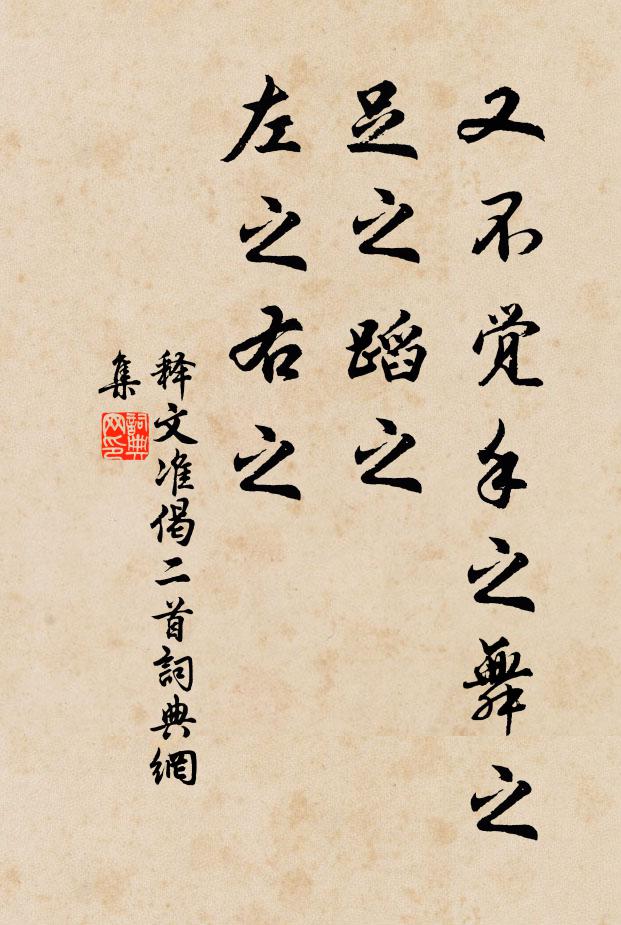 又不觉手之舞之
足之蹈之
左之右之
释文准偈二首詞典網
集
詞典
网印